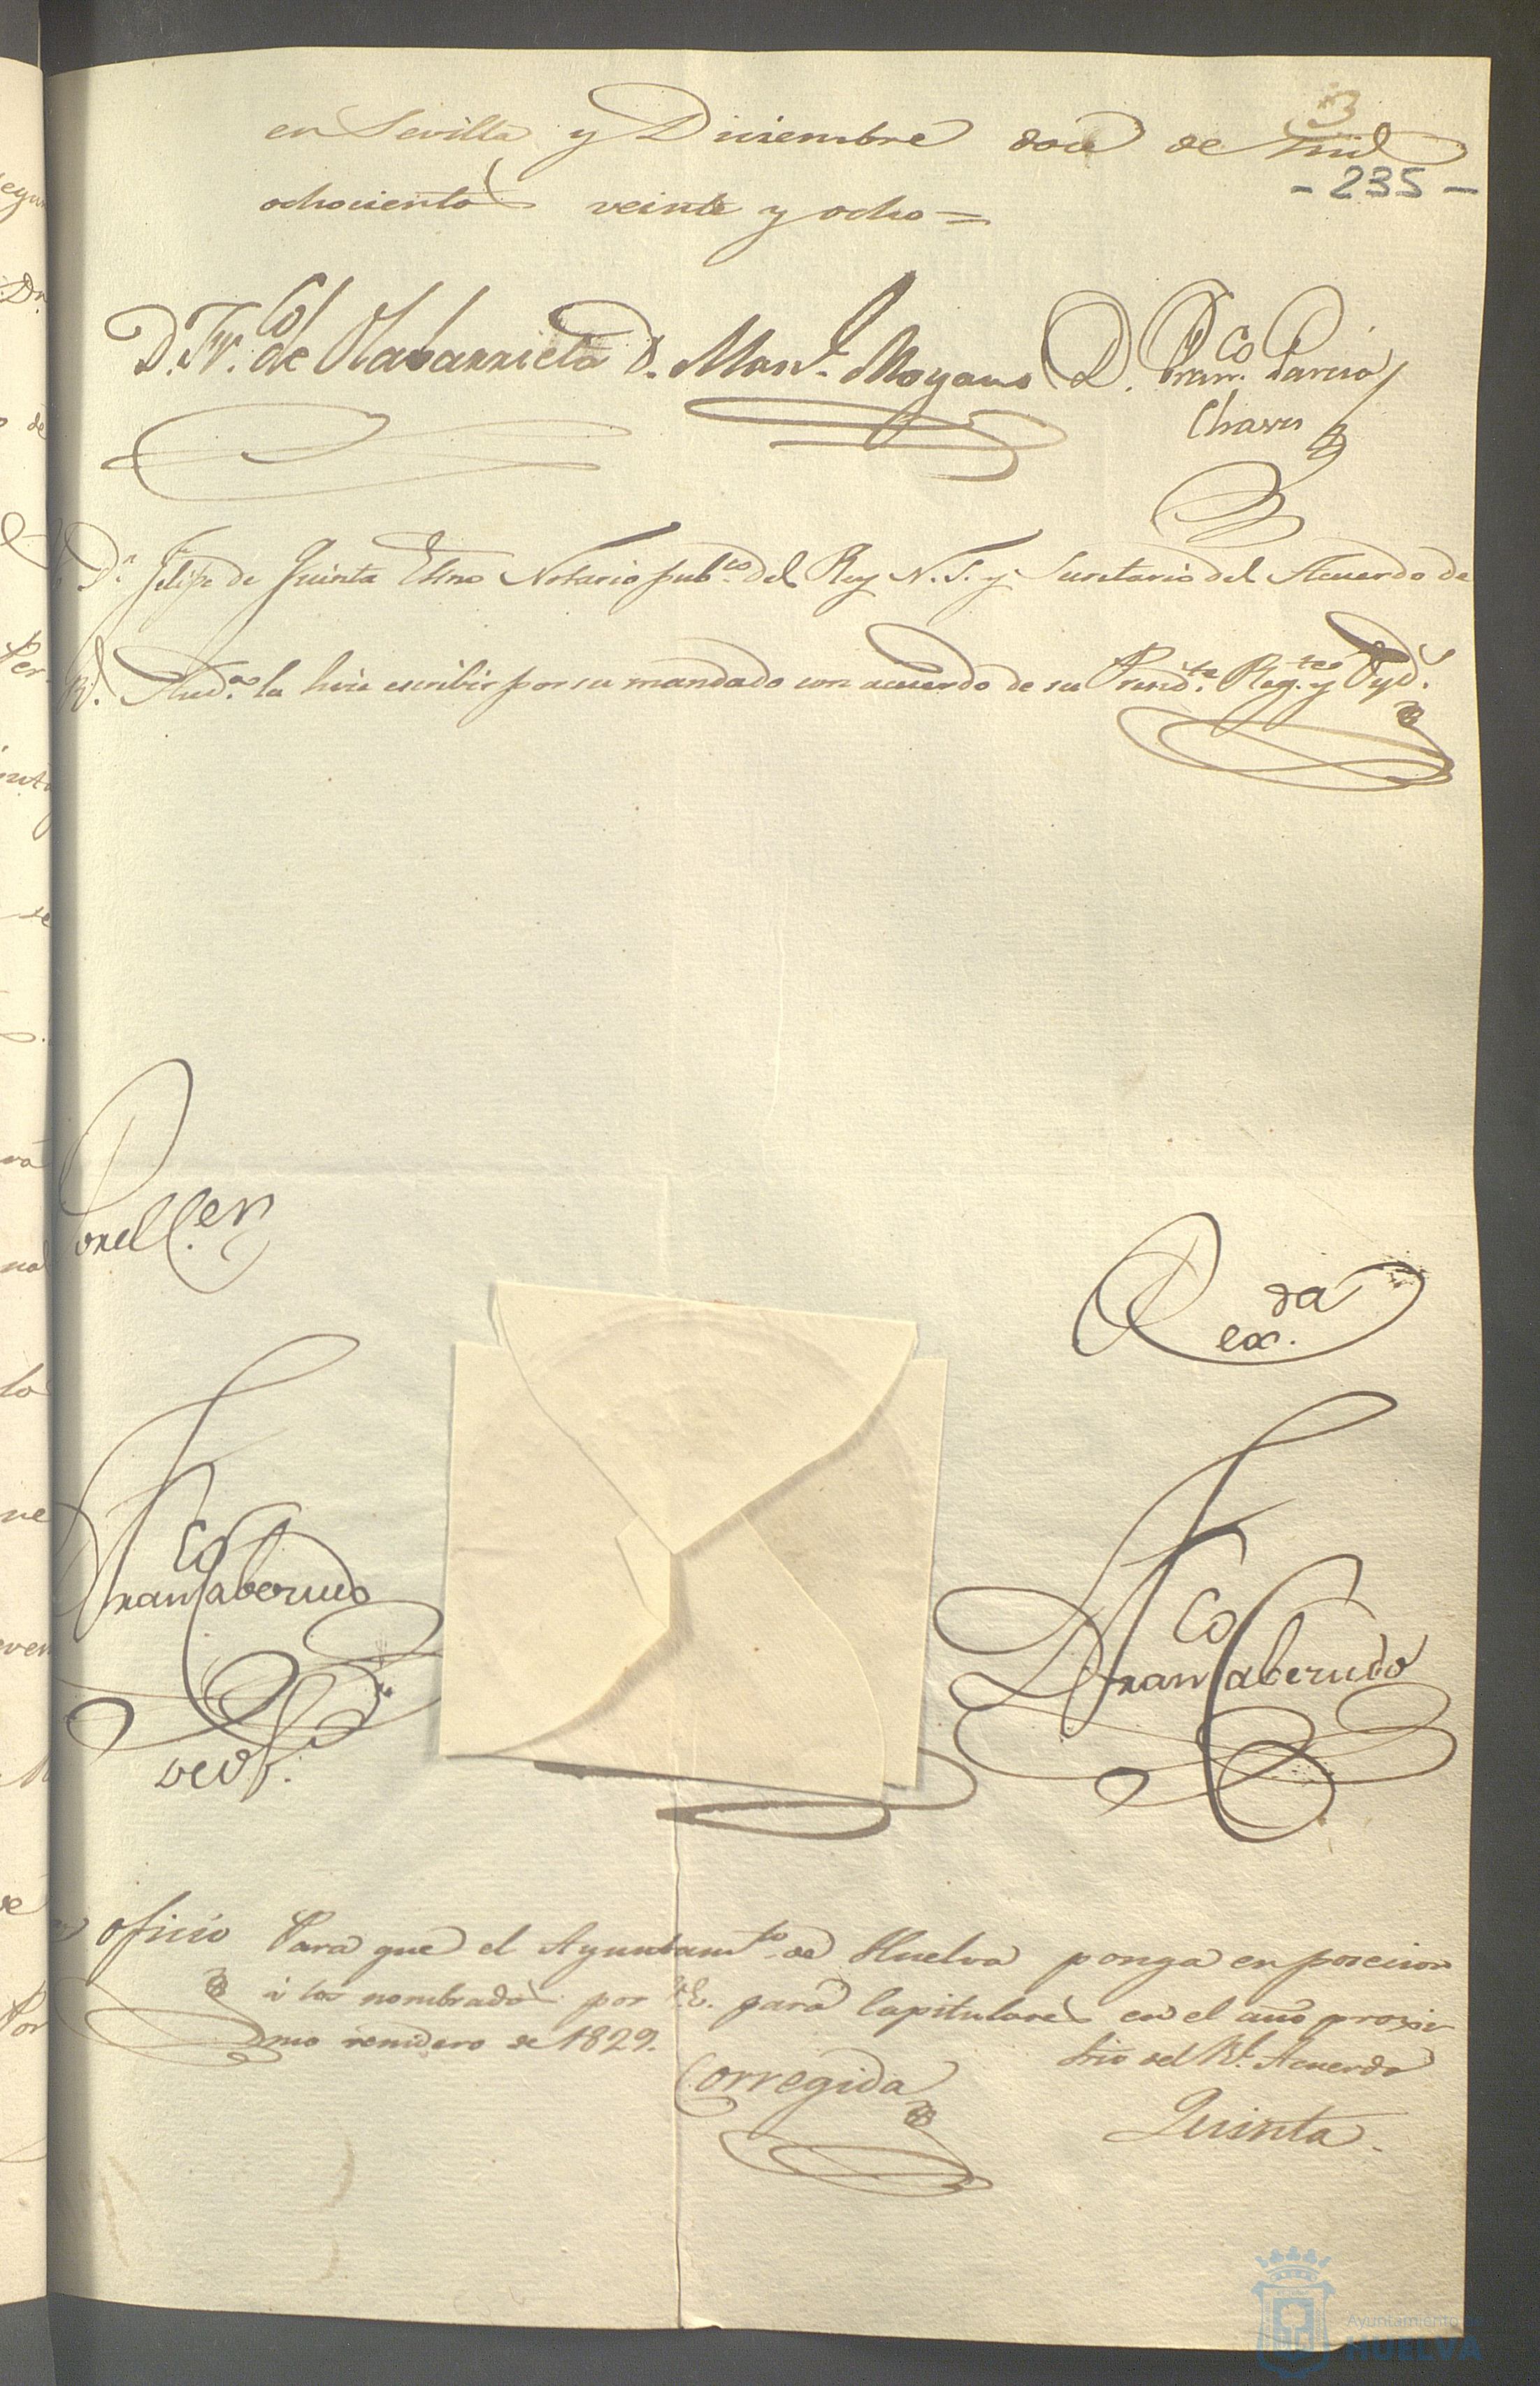 3
en Sevilla y Diciembre doce de mil
- 235 -
ochocientos veinte y ocho =
D. Fr.co de Olabarrieta D. Man.l Moyano D. Fran.co Garcia
Chaves
D.n Felipe de Quinta Esno Notario pub.co del Rey N. S. y Secretario del Acuerdo de
Rl. Aud.a la hice escribir por su mandado con acuerdo de su Presid.te Reg.te y Oyd.s
Por el C.er
Rex.da
Fran.co Cabernedo
Fran.co Cabernedo
oficio Para que el Ayuntam.to de Huelva ponga en posecion
á los nombrados por V.E. para Capitulares en el año proxi-
mo venidero de 1829.
Srio del Rl. Acuerdo
Corregida
Quinta.
Ayuntamiento de
HUELVA